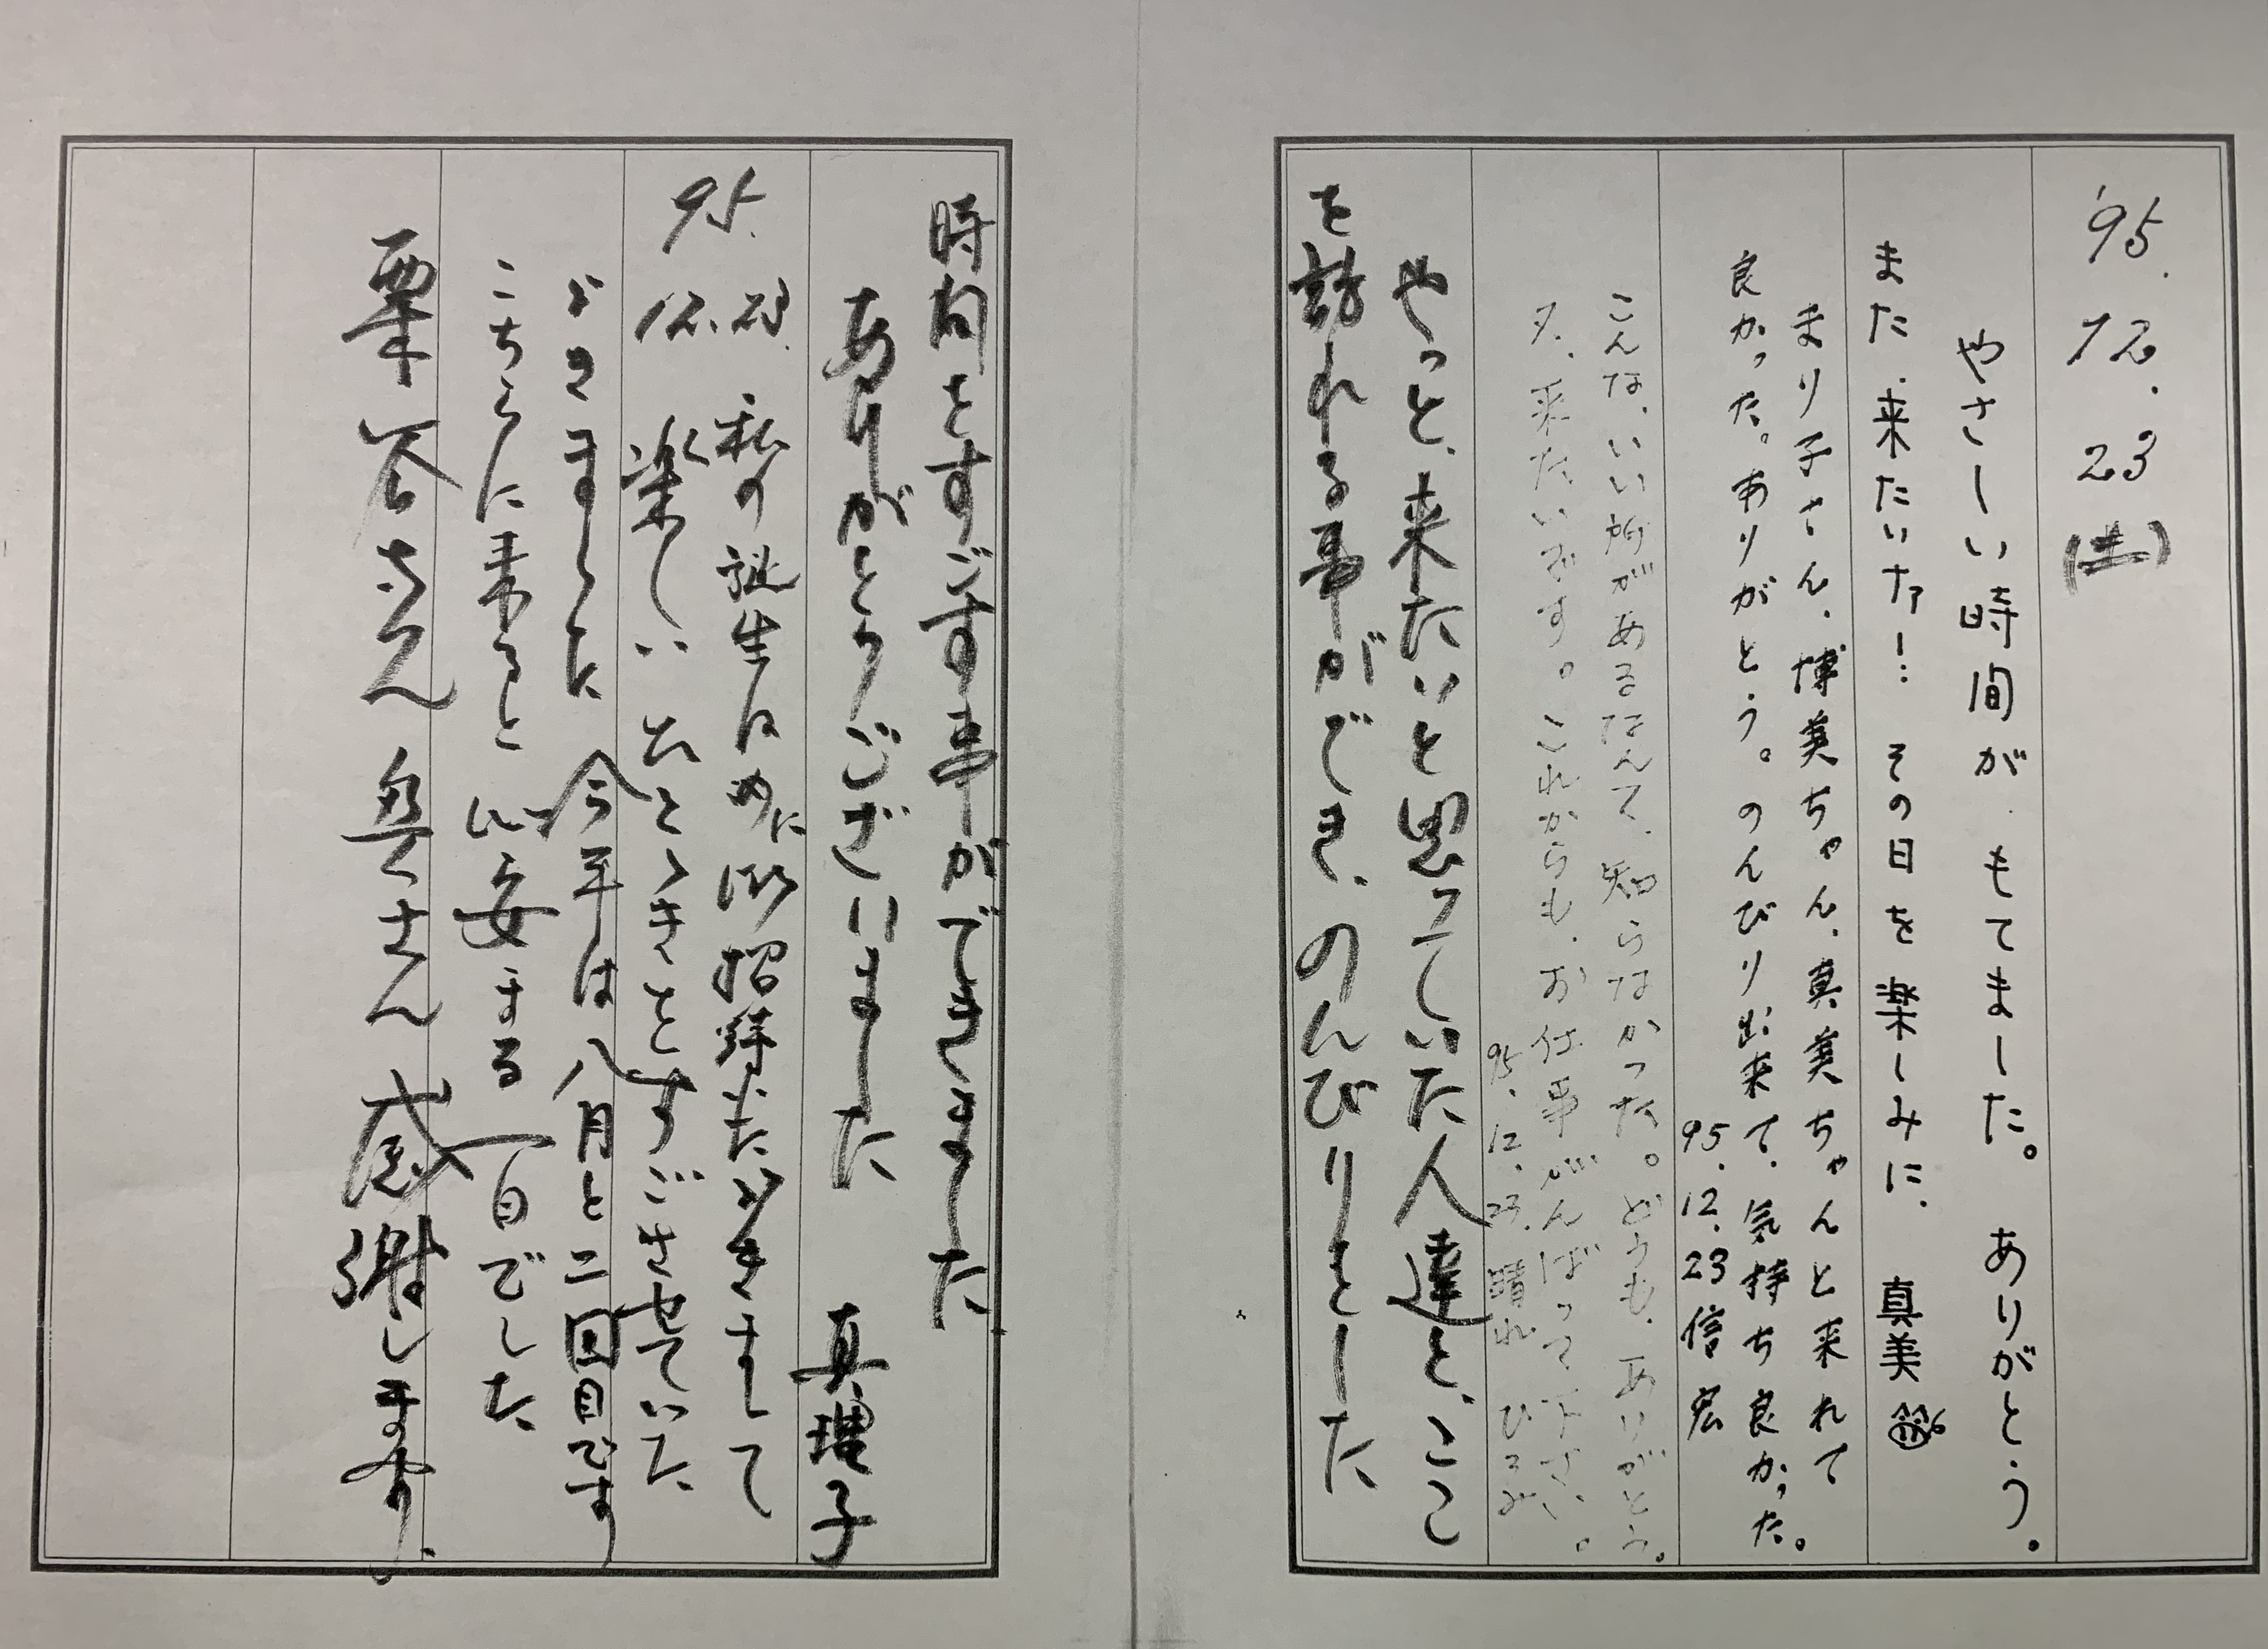 '95. 12. 23 (土)
やさしい時間が、もてました。ありがとう。
また来たいナァ！… その日を楽しみに、 真美
まり子さん、博美ちゃん、真美ちゃんと来れて
良かった。ありがとう。のんびり出来て、気持ち良かった。
95.12.23 信宏
こんな、いい所があるなんて、知らなかった。どうも、ありがとう。
又、来たいです。これからも、お仕事がんばって下さい。
95.12.23. 晴れ ひろみ
やっと、来たいと思っていた人達と、ここ
を訪れる事ができ、のんびりとした
時間をすごす事ができました。
ありがとうございました 真理子
95. 12. 23. 私の誕生日の為に御招待いただきまして
楽しいひとときをすごさせていた
だきました 今年は八月と二回目です
こちらに来ると心安まる一日でした
栗谷さん 奥さん 感謝します。